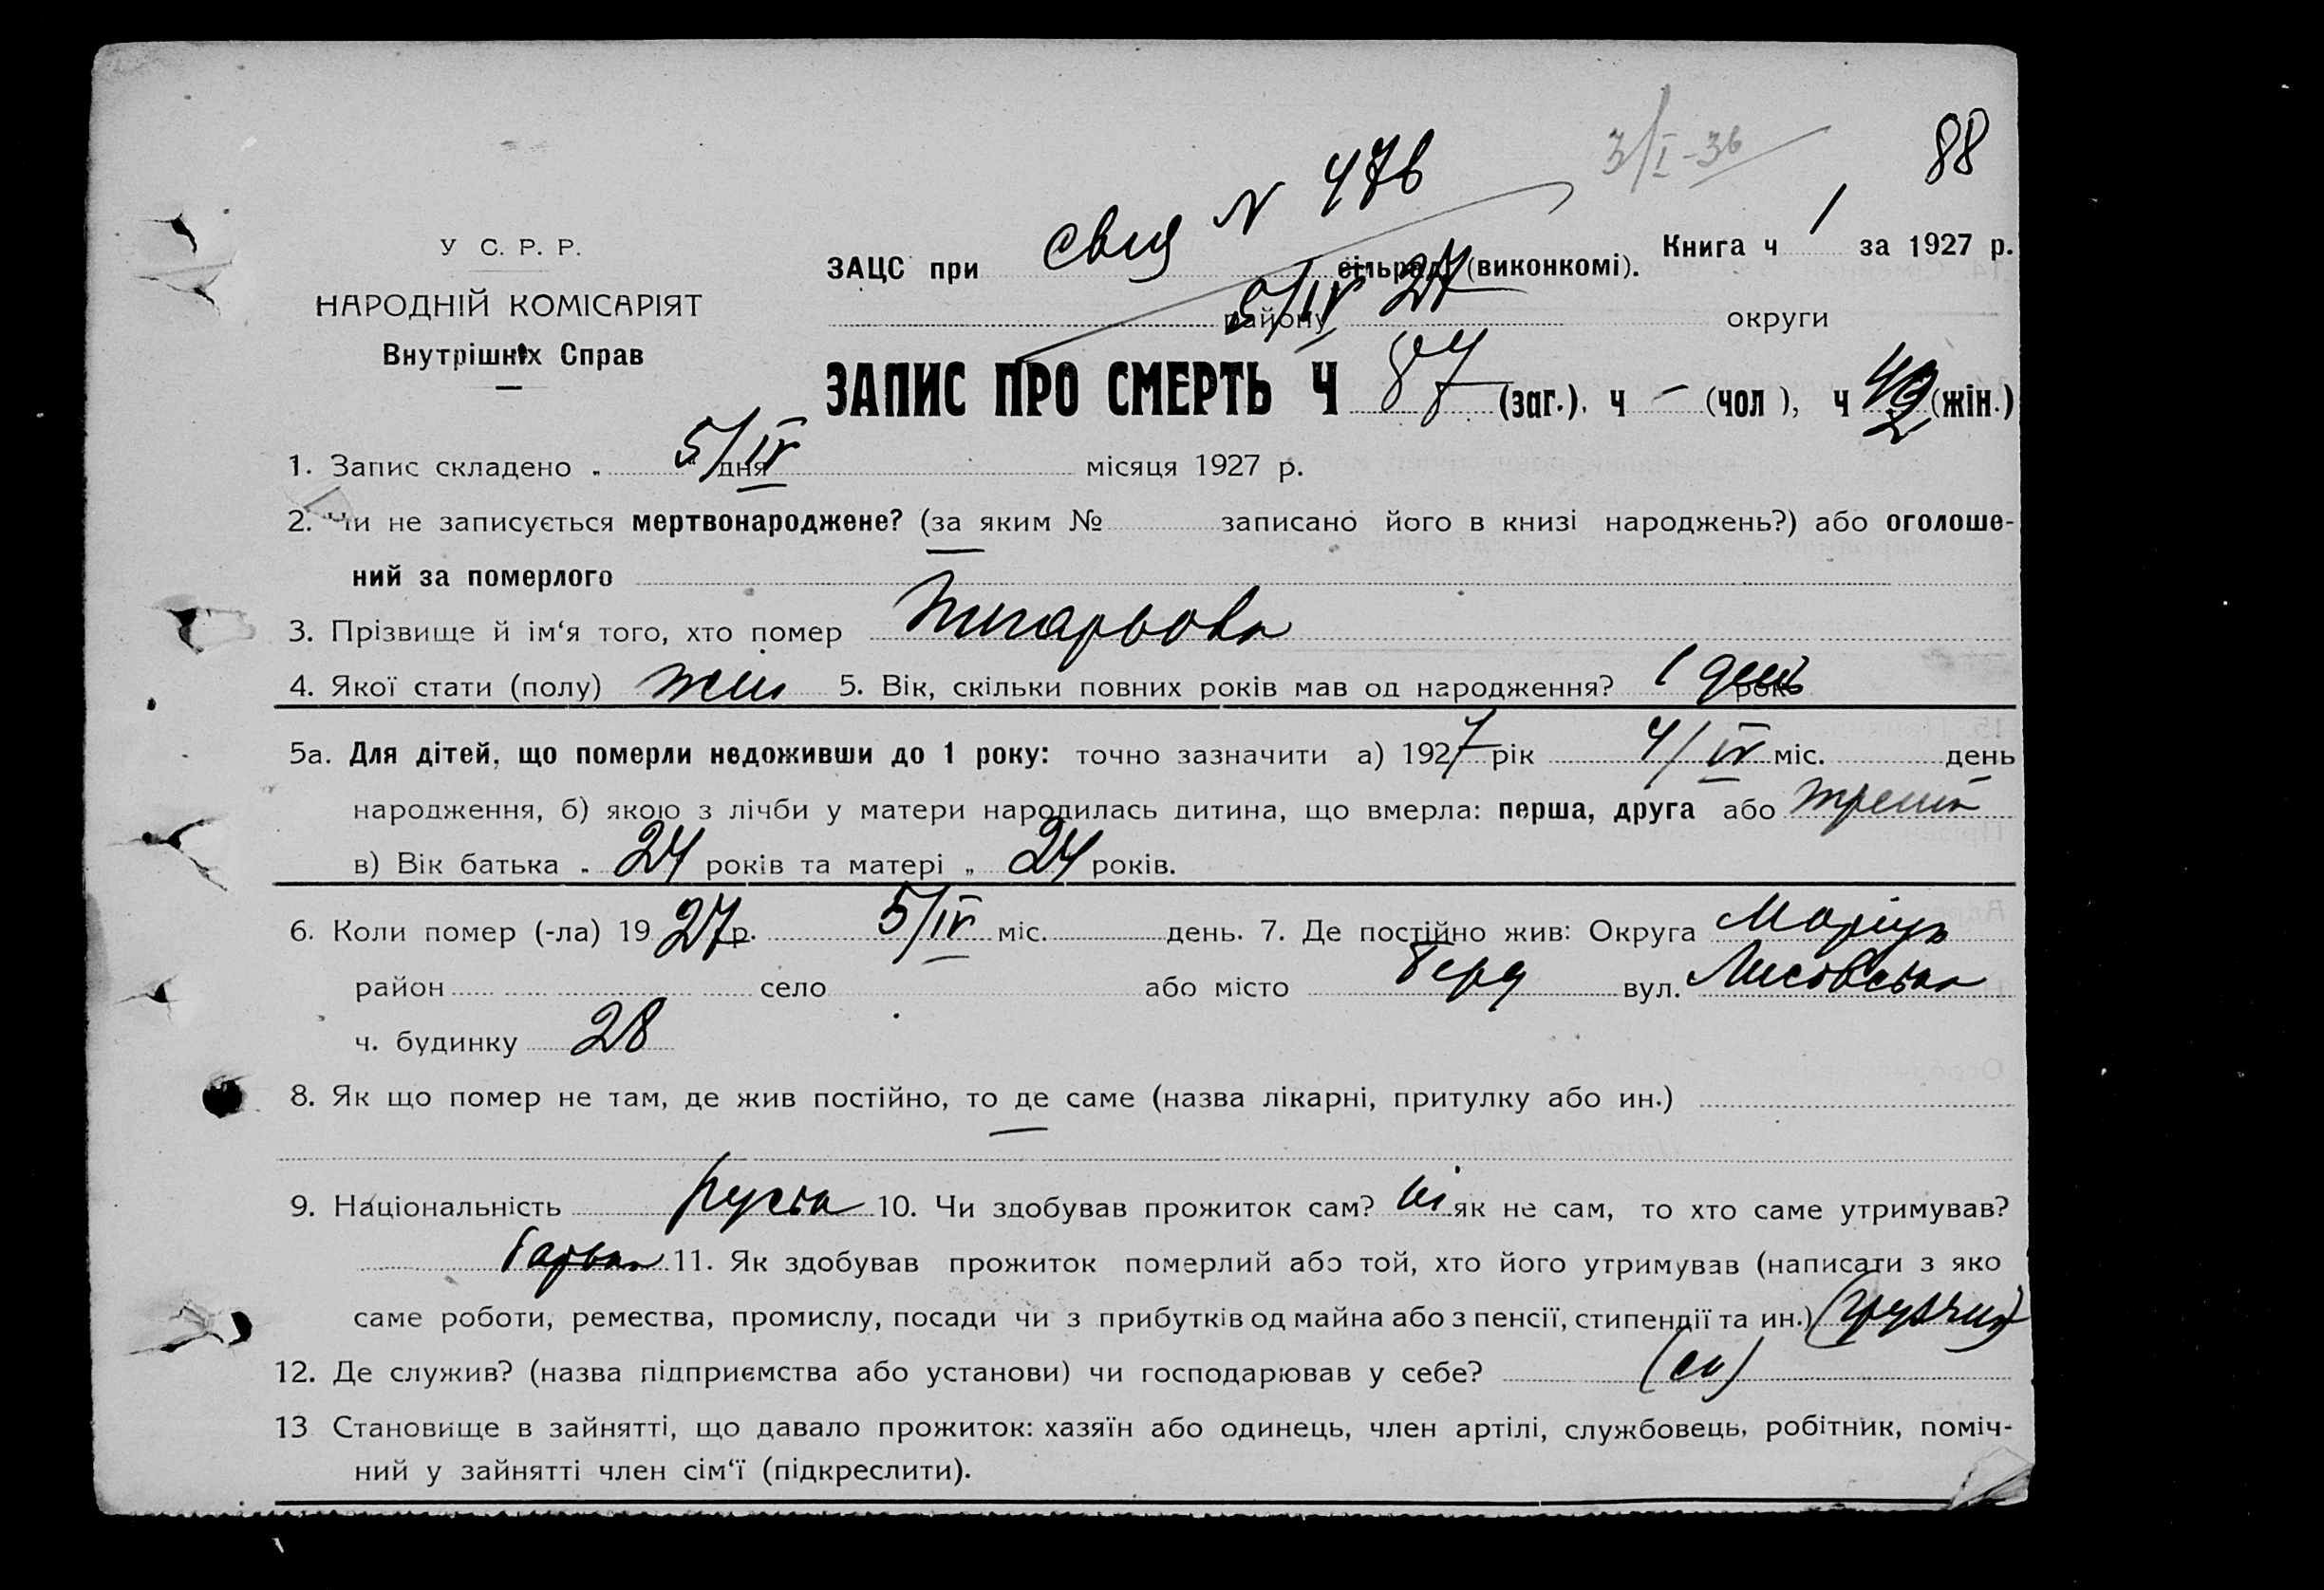 3/I-36
88
N 476
У С. Р. Р.
ЗАЦС при сільраді (виконкомі). Книга ч 1 за 1927 р.
5/IV 27
району округи
НАРОДНІЙ КОМІСАРІЯТ
Внутрішніх Справ
ЗАПИС ПРО СМЕРТЬ Ч 87 (заг.), ч – (чол ), ч (жін.)
1. Запис складено „ 5/IV " дня місяця 1927 р.
2. Чи не записується мертвонароджене? (за яким № записано його в книзі народжень?) або оголоше-
ний за померлого —
3. Прізвище й ім‘я того, хто помер Жигарьова
4. Якої стати (полу) жін 5. Вік, скільки повних років мав од народження? 1 день
5а. Для дітей, що померли недоживши до 1 року: точно зазначити а) 1927 рік 4/IV міс. день
народження, б) якою з лічби у матери народилась дитина, що вмерла: перша, друга або третя
в) Вік батька „ 24 років та матері „ 24 років.
6. Коли помер (-ла) 1927 р. 5/IV міс. день. 7. Де постійно жив: Округа Маріуп
район село або місто Берд вул. Лисовська
ч. будинку 28
8. Як що помер не там, де жив постійно, то де саме (назва лікарні, притулку або ин.)
—
9. Національність руська 10. Чи здобував прожиток сам? ні як не сам, то хто саме утримував?
11. Як здобував прожиток померлий або той, хто його утримував (написати з яко
саме роботи, ремества, промислу, посади чи з прибутків од майна або з пенсії, стипендії та ин.)
12. Де служив? (назва підприємства або установи) чи господарював у себе?
13 Становище в зайнятті, що давало прожиток: хазяїн або одинець, член артілі, службовець, робітник, поміч-
ний у зайнятті член сім‘ї (підкреслити).